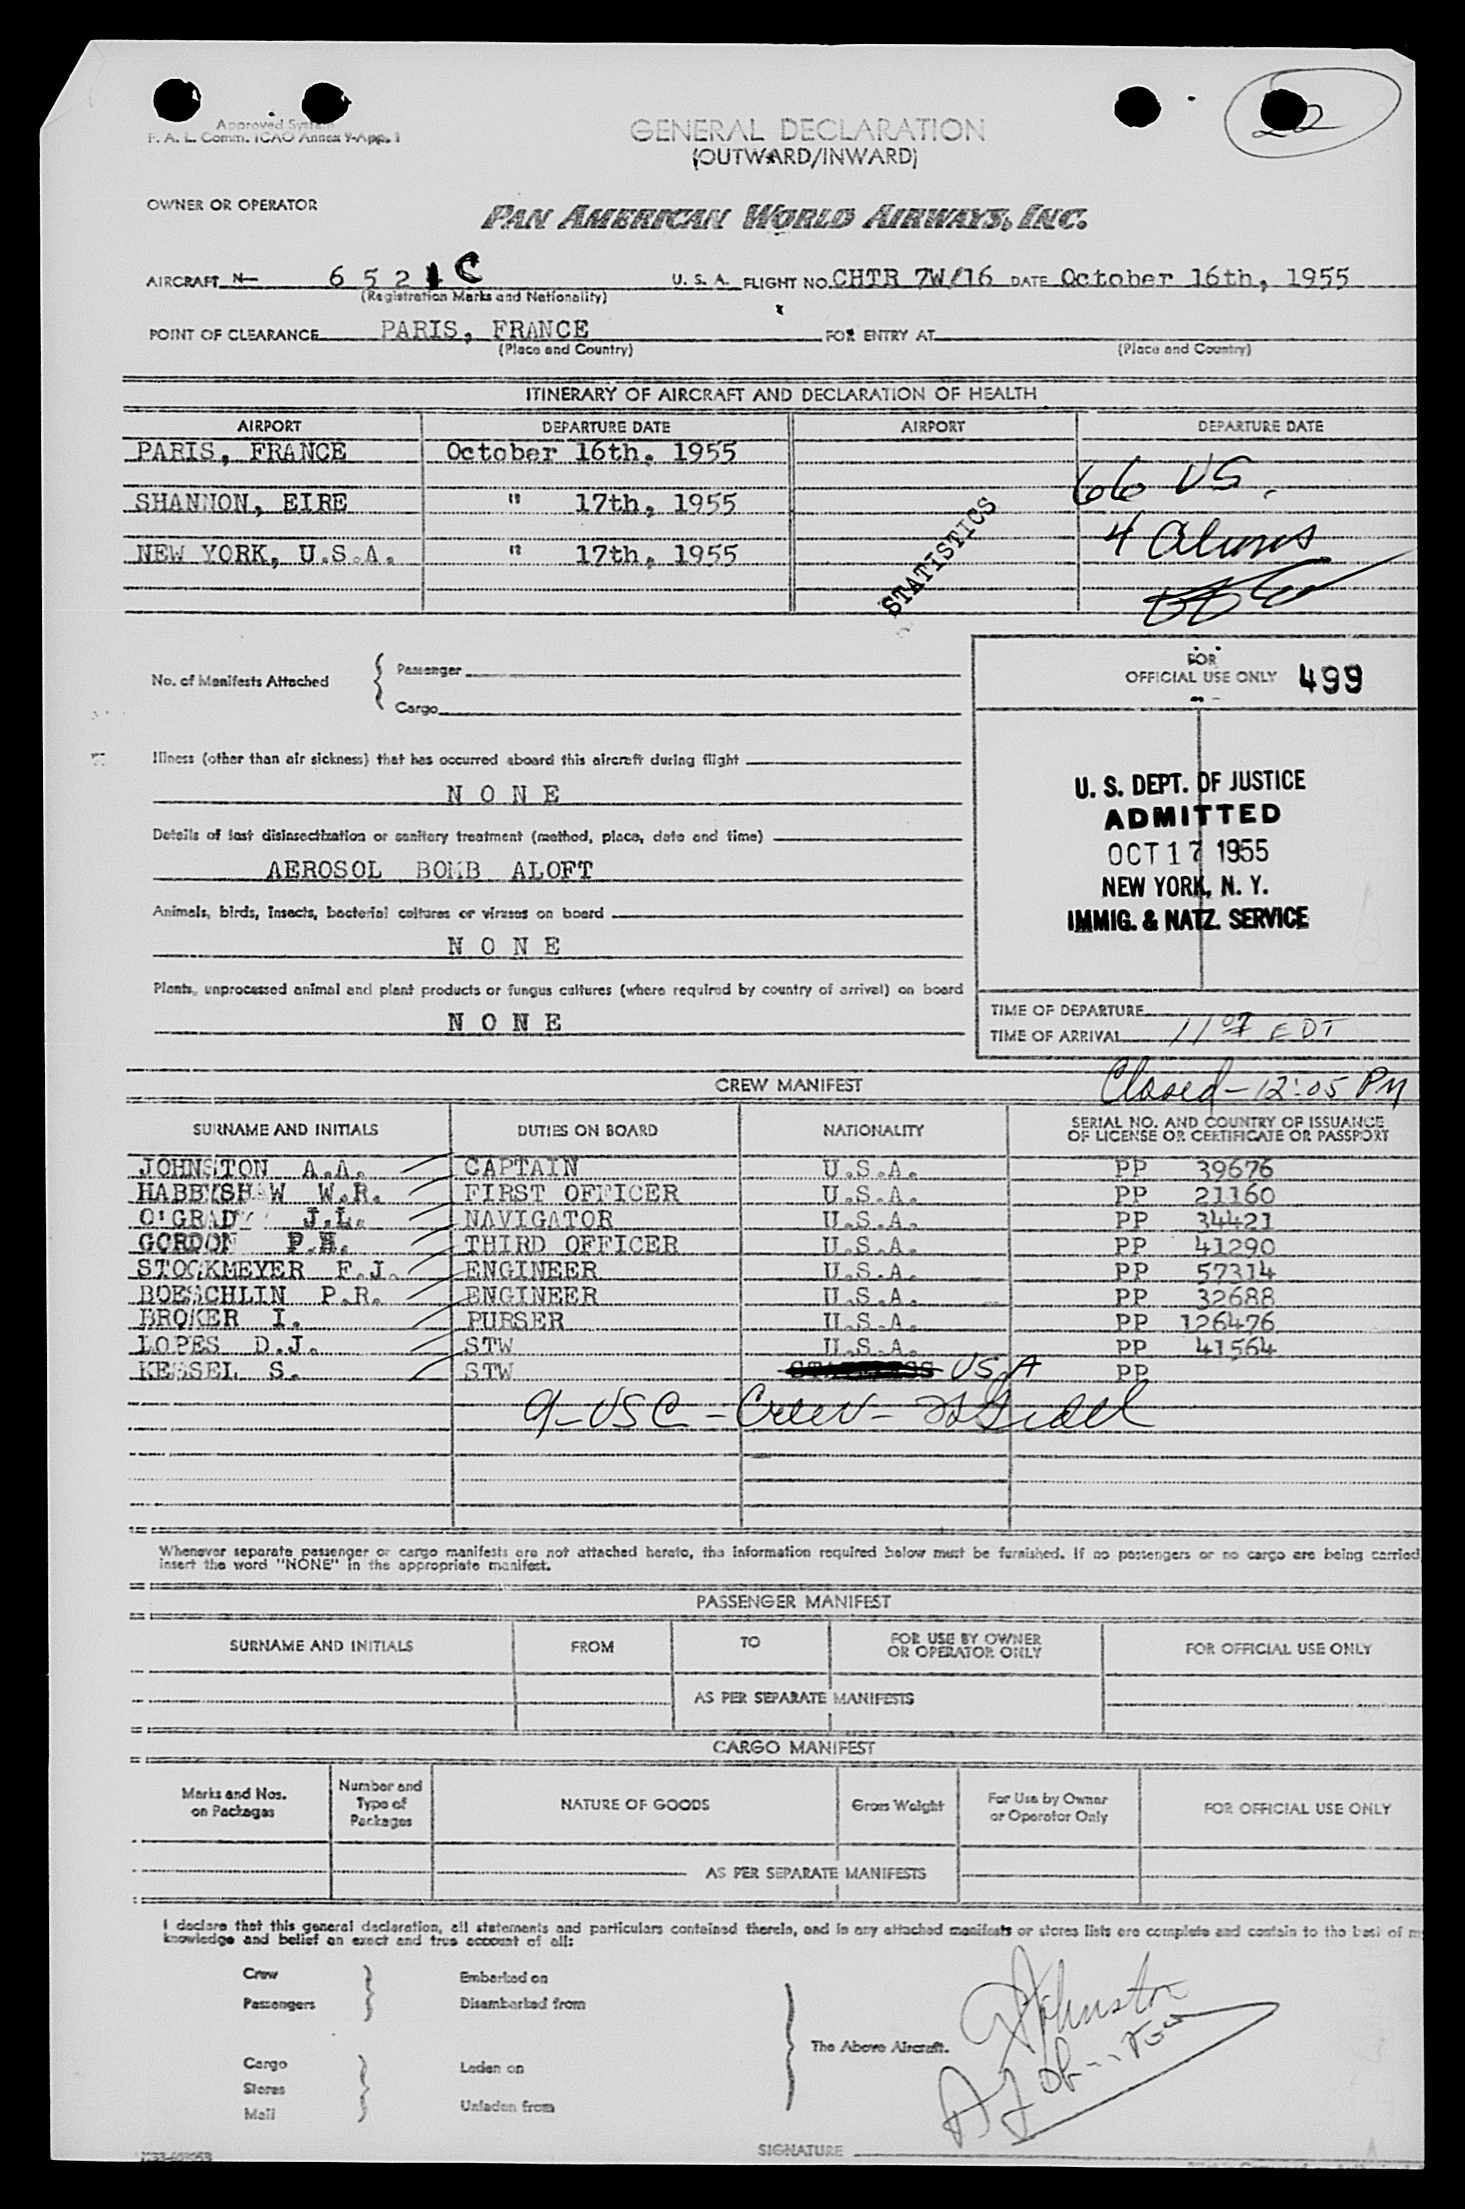 Approved System
F. A. L. Comm. ICAO Annex 9-App. 1
22
GENERAL DECLARATION
(OUTWARD/INWARD)
OWNER OR OPERATOR
PAN AMERICAN WORLD AIRWAYS, INC.
AIRCRAFT N— 6 5 2 1 C U. S. A. FLIGHT NO. CHTR 7W/16 DATE October 16th, 1955
(Registration Marks and Nationality)
POINT OF CLEARANCE PARIS, FRANCE FOR ENTRY AT
(Place and Country) (Place and Country)
ITINERARY OF AIRCRAFT AND DECLARATION OF HEALTH
AIRPORT DEPARTURE DATE AIRPORT DEPARTURE DATE
PARIS, FRANCE October 16th, 1955
66 US.
SHANNON, EIRE " 17th, 1955
4 Aliens
NEW YORK, U.S.A. " 17th, 1955
STATISTICS
No. of Manifests Attached { Passenger
Cargo
FOR
OFFICIAL USE ONLY 499
Illness (other than air sickness) that has occurred aboard this aircraft during flight
N O N E
Details of last disinsectization or sanitary treatment (method, place, date and time)
AEROSOL BOMB ALOFT
Animals, birds, insects, bacterial cultures or viruses on board
N O N E
Plants, unprocessed animal and plant products or fungus cultures (where required by country of arrival) on board
N O N E
U. S. DEPT. OF JUSTICE
ADMITTED
OCT 17 1955
NEW YORK, N. Y.
IMMIG. & NATZ. SERVICE
TIME OF DEPARTURE
TIME OF ARRIVAL 1107 EDT
Closed - 12:05 PM
CREW MANIFEST
SURNAME AND INITIALS DUTIES ON BOARD NATIONALITY SERIAL NO. AND COUNTRY OF ISSUANCE
OF LICENSE OR CERTIFICATE OR PASSPORT
JOHNSTON A.A. CAPTAIN U.S.A. PP 39676
HABBYSHAW W.R. FIRST OFFICER U.S.A. PP 21160
O'GRADY J.L. NAVIGATOR U.S.A. PP 34421
GORDON P.H. THIRD OFFICER U.S.A. PP 41290
STOCKMEYER F.J. ENGINEER U.S.A. PP 57314
BOESCHLIN P.R. ENGINEER U.S.A. PP 32688
BROKER I. PURSER U.S.A. PP 126476
LOPES D.J. STW U.S.A. PP 41564
KESSEL S. STW USA PP
9 - USC - Crew -
Whenever separate passenger or cargo manifests are not attached hereto, the information required below must be furnished. If no passengers or no cargo are being carried,
insert the word "NONE" in the appropriate manifest.
PASSENGER MANIFEST
SURNAME AND INITIALS FROM TO FOR USE BY OWNER
OR OPERATOR ONLY FOR OFFICIAL USE ONLY
AS PER SEPARATE MANIFESTS
CARGO MANIFEST
Marks and Nos.
on Packages Number and
Type of
Packages NATURE OF GOODS Gross Weight For Use by Owner
or Operator Only FOR OFFICIAL USE ONLY
AS PER SEPARATE MANIFESTS
I declare that this general declaration, all statements and particulars contained therein, and in any attached manifests or stores lists are complete and contain to the best of my
knowledge and belief an exact and true account of all:
Crew } Embarked on
Passengers Disembarked from
The Above Aircraft.
Cargo } Laden on
Stores
Mail Unladen from
A Johnston
A Johnston
SIGNATURE